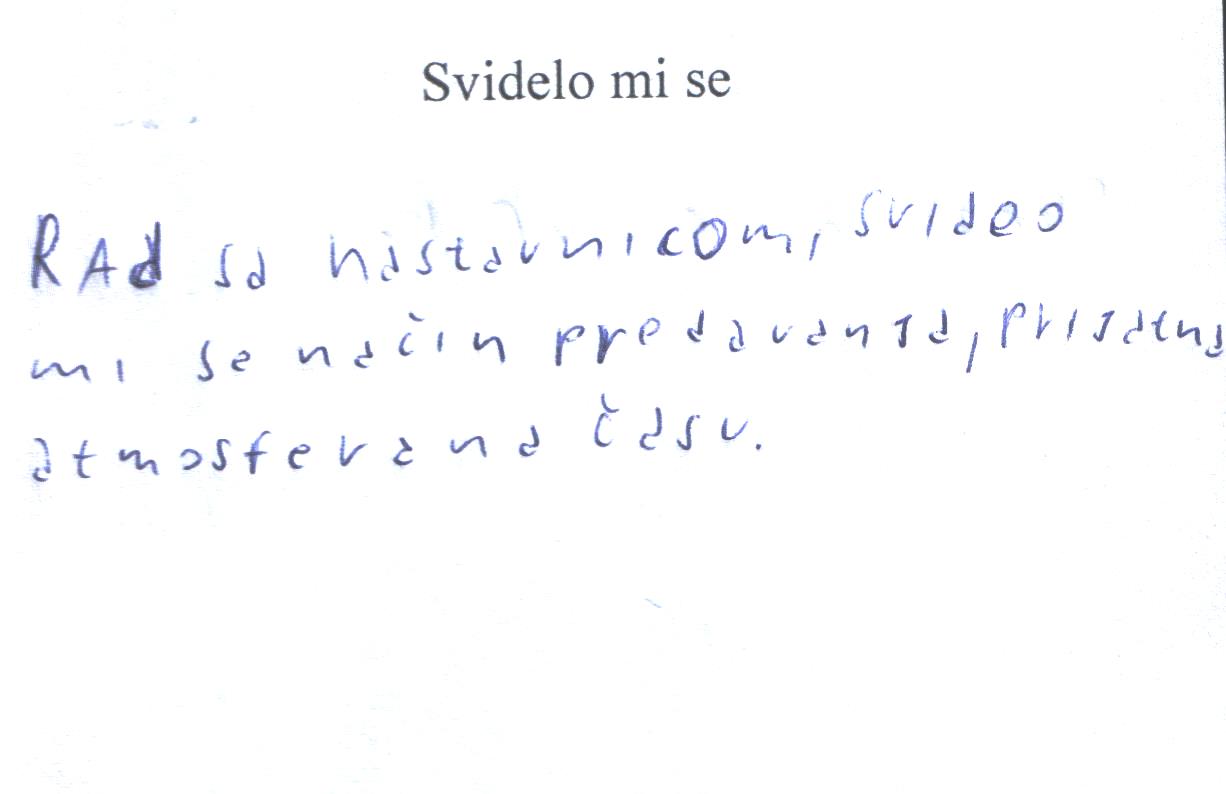 Svidelo mi se
RAd sa nastavnicom, svideo
mi se način predavanja, prijatna
atmosfera na času.